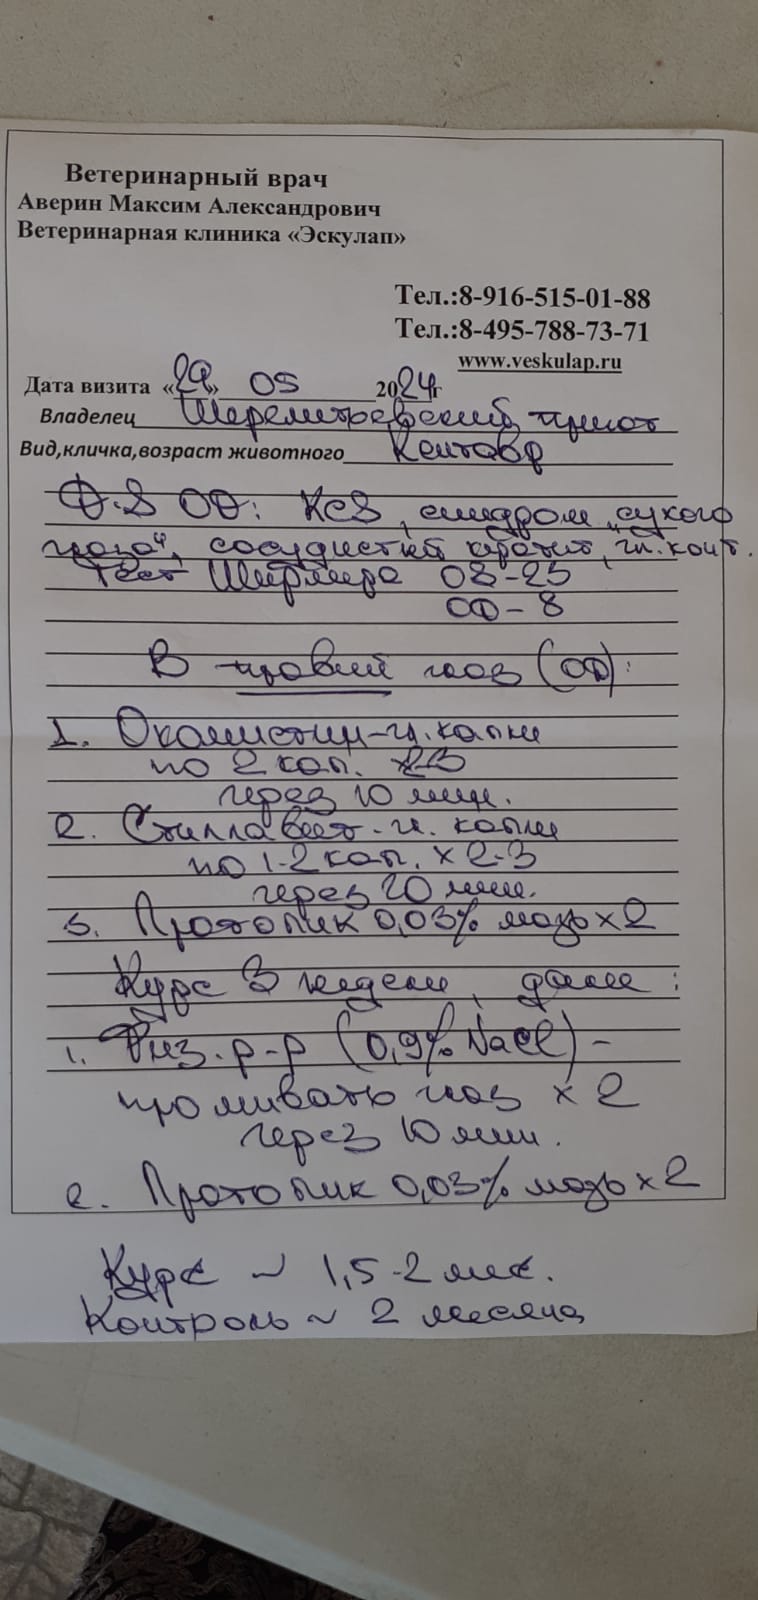 Ветеринарный врач
Аверин Максим Александрович
Ветеринарная клиника «Эскулап»
Тел.:8-916-515-01-88
Тел.:8-495-788-73-71
www.veskulap.ru
Дата визита «29» 05 2024г
Владелец Шереметьевский приют
Вид,кличка,возраст животного Кентавр
D.S OD: КСЗ, синдром „сухого
глаза“, сосудистый кератит, гн. конт.
Тест Ширмера OS-25
OD-8
В правый глаз (OD):
1. Окомистин-гл. капли
по 2 кап. x3
через 10 мин.
2. Стиллавит-гл. капли
по 1-2 кап. x 2-3
через 20 мин.
3. Протопик 0,03% мазь x 2
Курс 3 недели, далее:
1. Физ. р-р (0,9% NaCl) -
промывать глаз x 2
через 10 мин.
2. Протопик 0,03% мазь x 2
Курс ~ 1,5-2 мес.
Контроль ~ 2 месяца